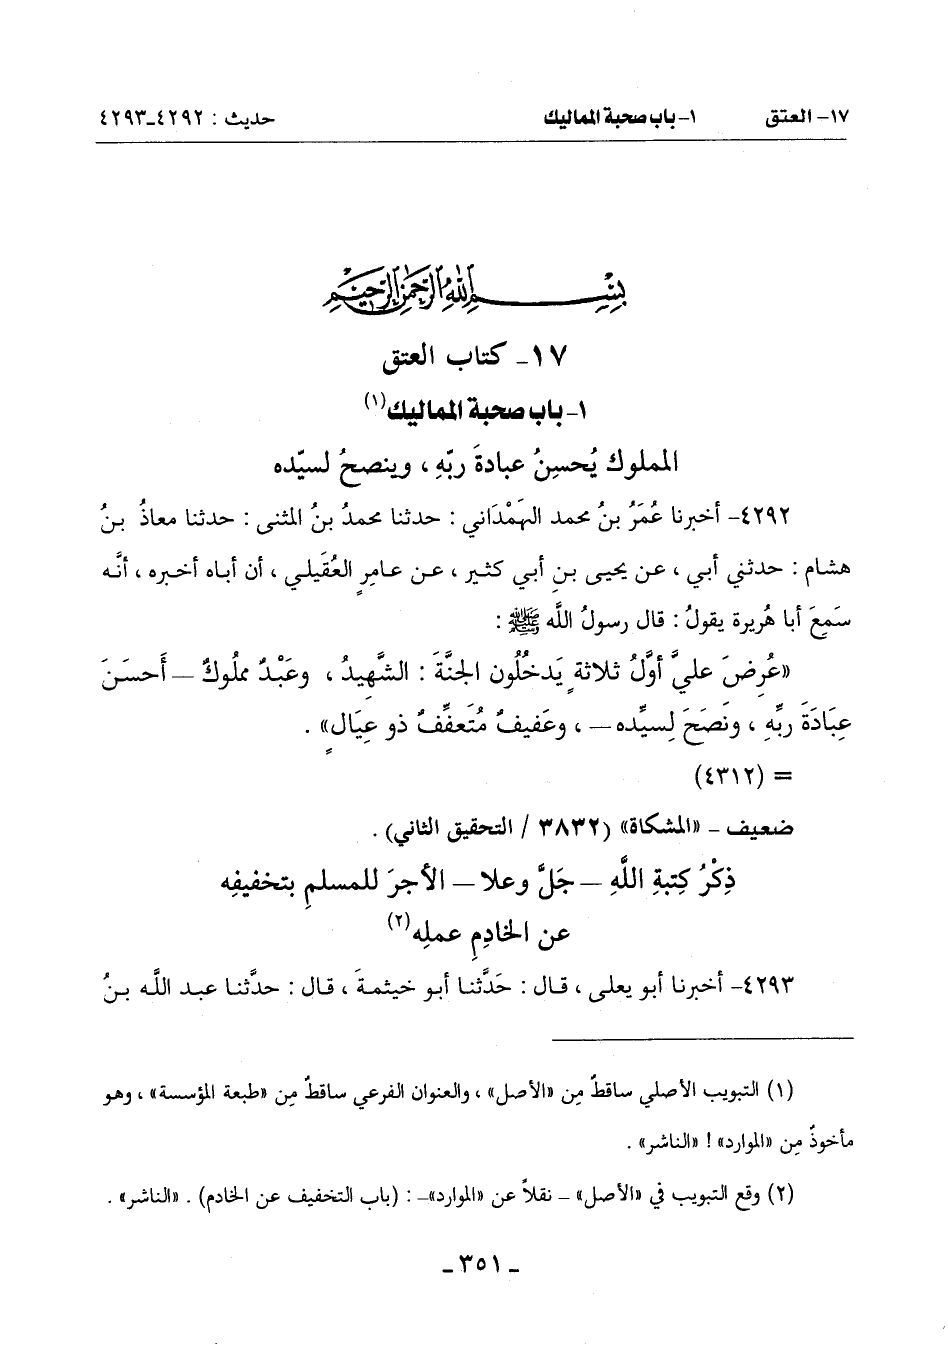 ١٧- العتق ١- باب صحبة المماليك حديث : ٤٢٩٢-٤٢٩٣
بِسْمِ اللهِ الرَّحْمٰنِ الرَّحِيْمِ
١٧- كتاب العتق
١- باب صحبة المماليك(١)
المملوك يُحسِنُ عبادةَ ربّهِ ، وينصحُ لسيّده
٤٢٩٢- أخبرنا عُمَرُ بنُ محمد الهَمْدَاني : حدثنا محمدُ بنُ المثنى : حدثنا معاذُ بنُ
هشام : حدثني أبي ، عن يحيى بنِ أبي كثير ، عن عامرٍ العُقَيلي ، أن أباه أخبره ، أنَّه
سَمِعَ أبا هُريرة يقولُ : قال رسولُ اللَّه ﷺ :
«عُرِضَ عليَّ أوَّلُ ثلاثةٍ يَدخُلُون الجنَّةَ : الشَّهِيدُ ، وعَبْدٌ مملُوكٌ — أَحسَنَ
عِبَادَةَ ربِّهِ ، ونَصَحَ لِسيِّده — ، وعَفيفٌ مُتَعفِّفٌ ذو عِيَالٍ» .
= (٤٣١٢)
ضعيف - «المشكاة» (٣٨٣٢ / التحقيق الثاني) .
ذِكْرُ كِتبةِ اللَّهِ — جَلَّ وعلا — الأجرَ للمسلمِ بتخفيفِه
عن الخادِمِ عملِه(٢)
٤٢٩٣- أخبرنا أبو يعلى ، قال : حَدَّثنا أبو خيثمةَ ، قال : حدَّثنا عبد اللَّه بنُ
(١) التبويب الأصلي ساقطٌ مِن «الأصل» ، والعنوان الفرعي ساقطٌ مِن «طبعة المؤسسة» ، وهو
مأخوذٌ مِن «الموارد» ! «الناشر» .
(٢) وقع التبويب في «الأصل» - نقلاً عن «الموارد»- : (باب التخفيف عن الخادم) . «الناشر» .
- ٣٥١ -